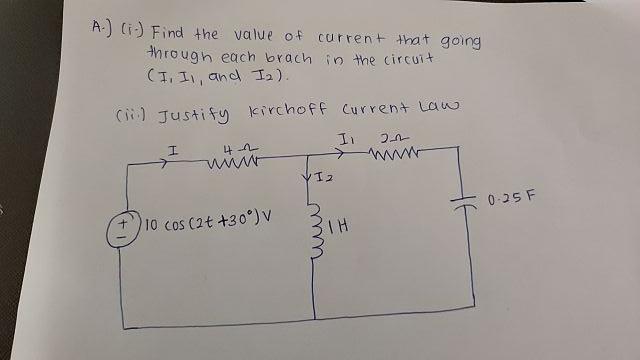 A.) (i.) Find the value of current that going
through each brach in the circuit
(I, I1, and I2).
(ii.) Justify Kirchoff Current Law
I 4Ω I1 2Ω
I2
10 cos (2t +30°) V
+
−
1H
0.25 F